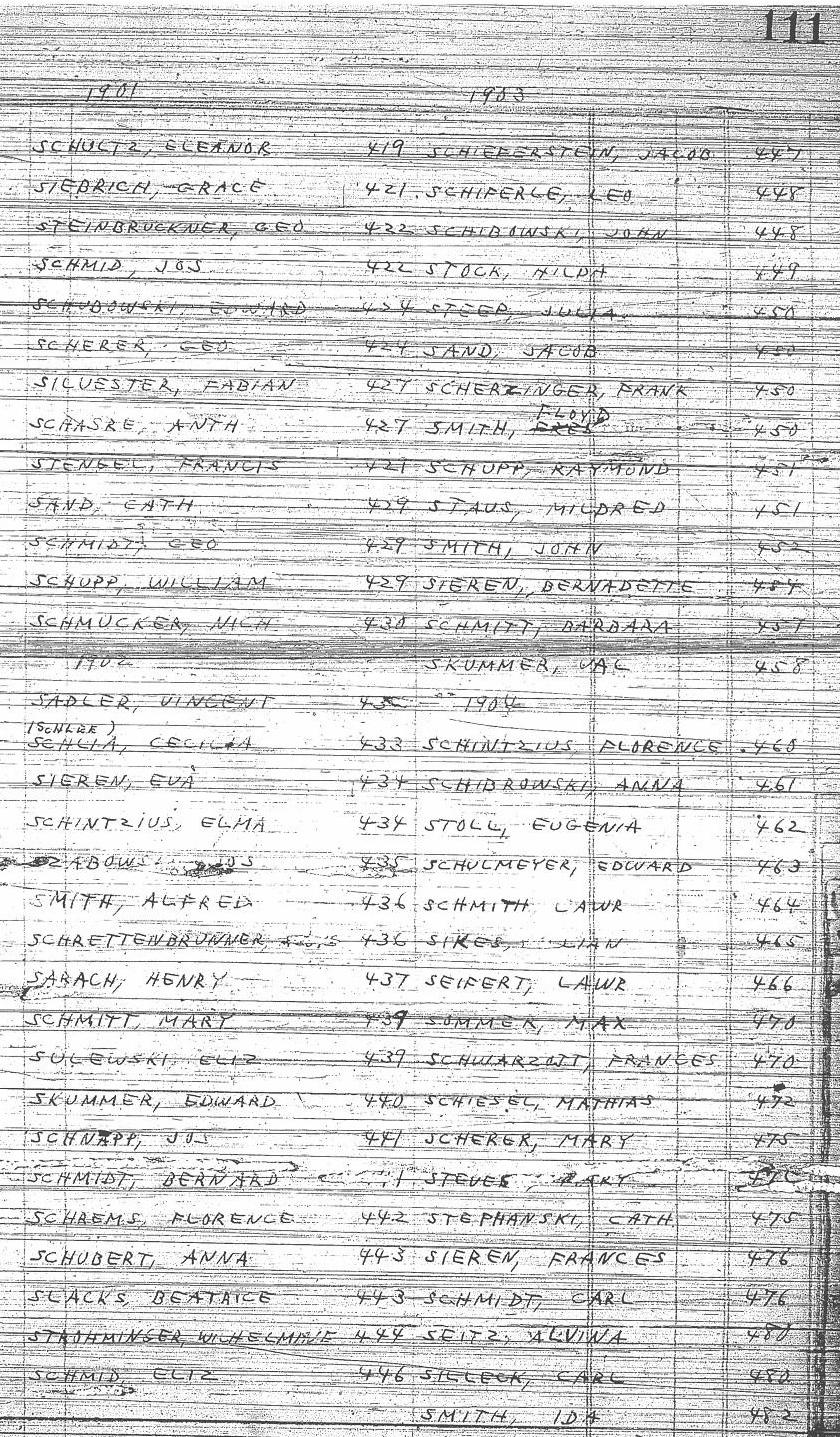 111
1901
SCHULTZ, ELEANOR 419
SIEBRICH, GRACE 421
STEINBRUCKNER, GEO 422
SCHMID, JOS 422
SCHUBOWSKI, EDWARD 424
SCHERER, GEO 424
SILVESTER, FABIAN 427
SCHASRE, ANTH 427
STENGEL, FRANCIS 427
SAND, CATH 429
SCHMIDT, GEO 429
SCHUPP, WILLIAM 429
SCHMUCKER, NICH 430
1902
SADLER, VINCENT
(SCHLEE)
SCHLIA, CECILIA 433
SIEREN, EVA 434
SCHINTZIUS, ELMA 434
JOS 435
SMITH, ALFRED 436
SCHRETTENBRUNNER, 436
SARACH, HENRY 437
SCHMITT, MARY 439
SULEWSKI, ELIZ 439
SKUMMER, EDWARD 440
SCHNAPP, JOS 441
SCHMIDT, BERNARD
SCHREMS, FLORENCE 442
SCHUBERT, ANNA 443
SLACKS, BEATRICE 443
STROHMINGER, WILHELMINE 444
SCHMID, ELIZ 446
1903
SCHIEFERSTEIN, JACOB 447
SCHIFERLE, LEO 448
SCHIBOWSKI, JOHN 448
STOCK, HILDA 449
STEEP, JULIA 450
SAND, JACOB 450
SCHERZINGER, FRANK 450
FLOYD
SMITH, 450
SCHUPP, RAYMOND 451
STAUS, MILDRED 451
SMITH, JOHN 452
SIEREN, BERNADETTE
SCHMITT, BARBARA 457
SKUMMER, VAL 458
1904
SCHINTZIUS, FLORENCE 460
SCHIBROWSKI, ANNA 461
STOLL, EUGENIA 462
SCHULMEYER, EDWARD 463
SCHMITH LAWR 464
SIKES, 465
SEIFERT, LAWR 466
SOMMER, MAX 470
SCHWARZOTT, FRANCES 470
SCHIESEL, MATHIAS 472
SCHERER, MARY 475
STEPHANSKI, CATH. 475
SIEREN, FRANCES 476
SCHMIDT, CARL 476
SEITZ, ALVINA 480
SILLECK, CARL 480
SMITH, IDA 482